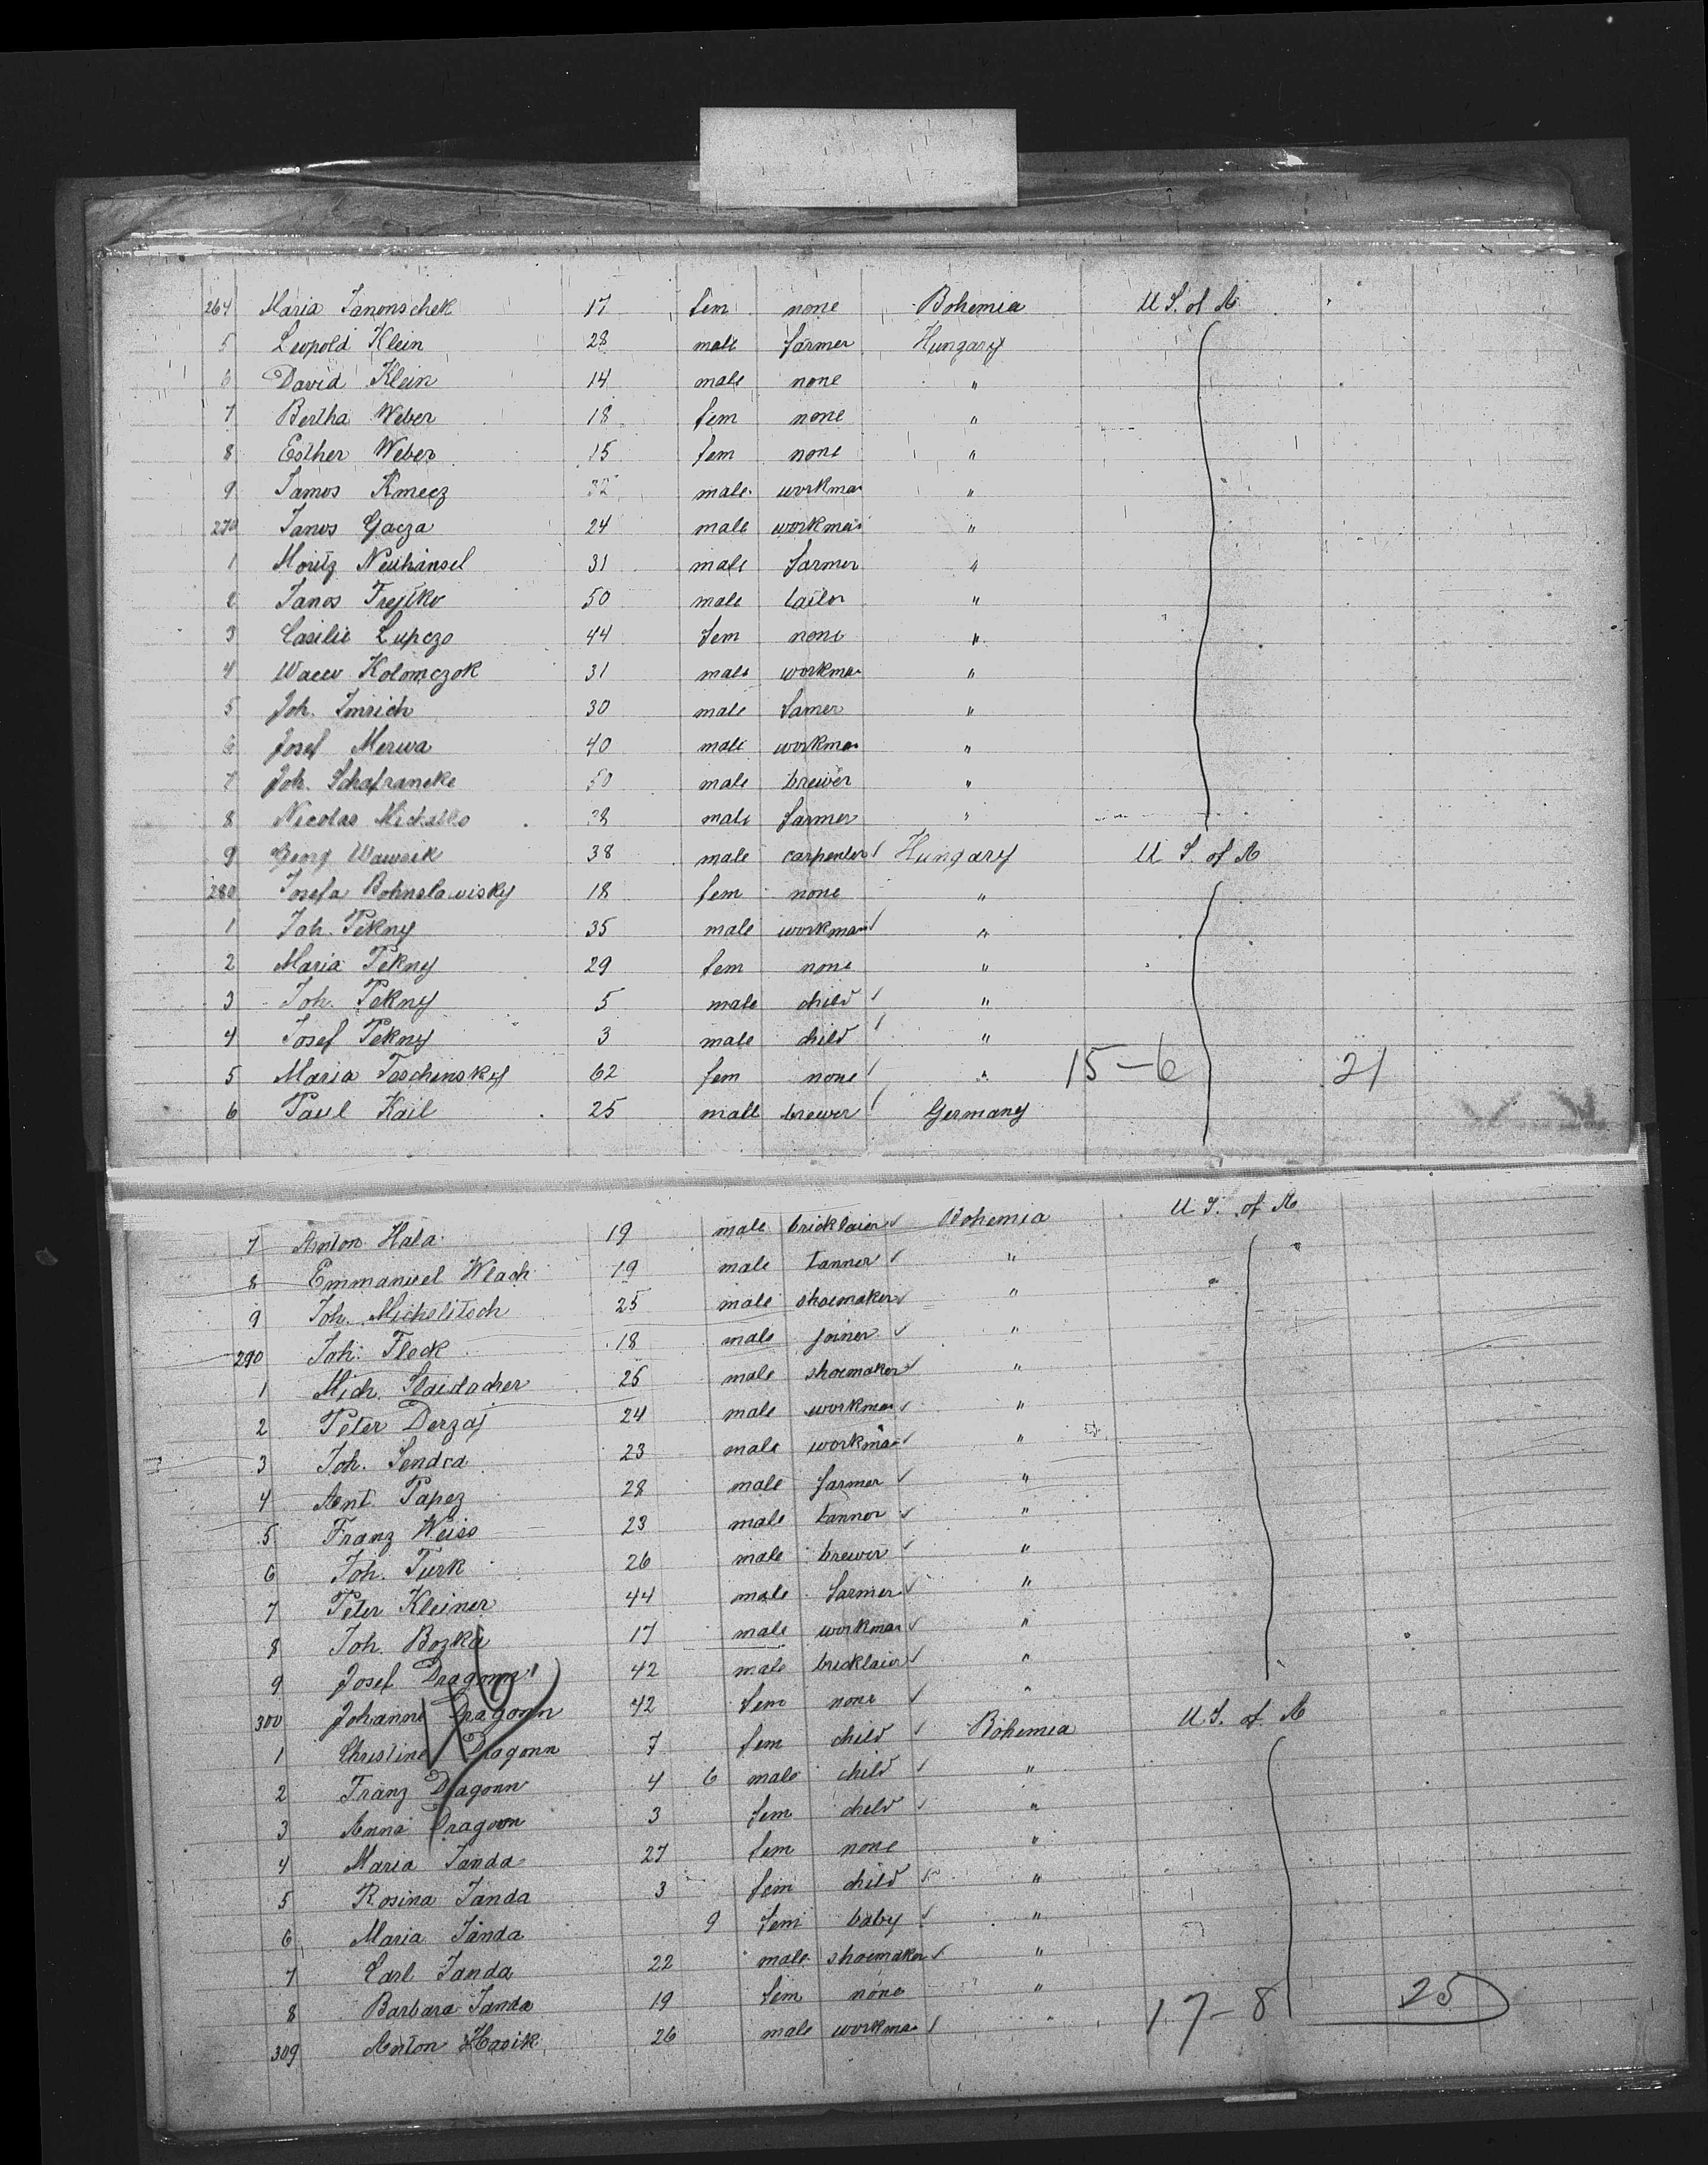 264 Maria Janonschek 17 fem none Bohemia U S. of A
5 Leopold Klein 28 male farmer Hungary
6 David Klein 14 male none "
7 Bertha Weber 18 fem none "
8 Esther Weber 15 fem none "
9 Jamos Kmecz 32 male workman "
270 Janos Gacza 24 male workman "
1 Moritz Neuhänsel 31 male farmer "
2 Janos Trejtko 50 male tailor "
3 Casilie Lupczo 44 fem none "
4 Wacw Kolomczok 31 male workman "
5 Joh. Imrich 30 male famer "
6 Josef Merwa 40 male workman "
7 Joh. Schafraneke 50 male brewer "
8 Nicolas Michalko 38 male farmer "
9 Georg Wawrek 38 male carpenter Hungary U S. of A
280 Josefa Bohnslawisky 18 fem none "
1 Joh. Pekny 35 male workman "
2 Maria Pekny 29 fem none "
3 Joh. Pekny 5 male child "
4 Josef Pekny 3 male child "
5 Maria Toschinsky 62 fem none " 15-6 21
6 Paul Kail 25 male brewer Germany
7 Anton Hala 19 male bricklaier Bohemia U S. of A
8 Emmanuel Wlach 19 male tanner "
9 Joh. Michslitsch 25 male shoemaker "
290 Joh. Flock 18 male joiner "
1 Mich. Slaidacher 25 male shoemaker "
2 Peter Derzaj 24 male workman "
3 Joh. Sendra 23 male workman "
4 Ant. Papez 28 male farmer "
5 Franz Weiss 23 male tanner "
6 Joh. Turk 26 male brewer "
7 Peter Kleiner 44 male farmer "
8 Joh. Bozka 17 male workman "
9 Josef Dragoun 42 male bricklaier "
300 Johanne Dragoun 42 fem none "
1 Christine Dragoun 7 fem child Bohemia U.S. of A
2 Franz Dragoun 4 6 male child "
3 Anna Dragoun 3 fem child "
4 Maria Janda 27 fem none "
5 Rosina Janda 3 fem child "
6 Maria Janda 9 fem baby "
7 Carl Janda 22 male shoemaker "
8 Barbara Janda 19 fem none " 17-8 25
309 Anton Hasik 26 male workman "